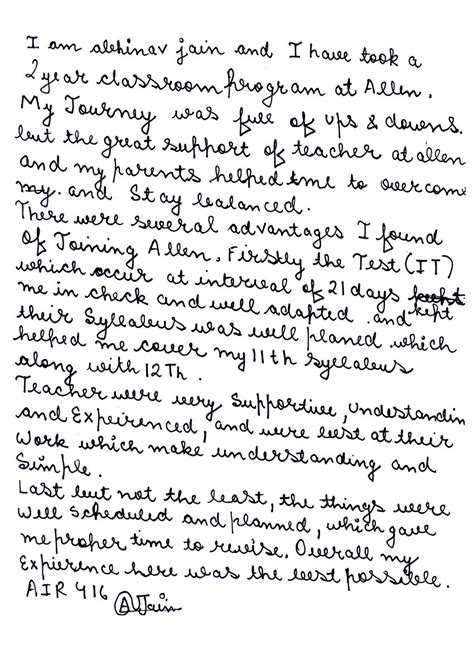 I am abhinav jain and I have took a
2 year classroom program at Allen.
My Journey was full of ups & downs.
but the great support of teacher at allen
and my parents helped me to overcome
my. and Stay balanced.
There were several advantages I found
Of Joining Allen. Firstly the Test (IT)
which occur at interval of 21 days kept
me in check and well adapted. and
their Syllabus was well planed which
helped me cover my 11th syllabus
along with 12Th.
Teacher were very Supportive, Understandin
and Expeirenced, and were best at their
Work which make understanding and
Simple.
Last but not the least, the things were
Well Scheduled and planned, which gave
me proper time to revise. Overall my
Expirience here was the best possible.
AIR 416
AJain